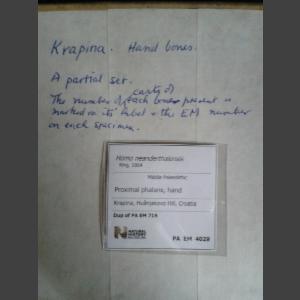 Krapina. Hand bones.
A partial set.
casts of
The number of each bones present is
marked on its label + the EM number
on each specimen.
Homo neanderthalensis
King, 1864
Middle Palaeolithic
Proximal phalanx, hand
Krapina, Hušnjakovo Hill, Croatia
Dup of PA EM 719
NATURAL
HISTORY
PA EM 4029